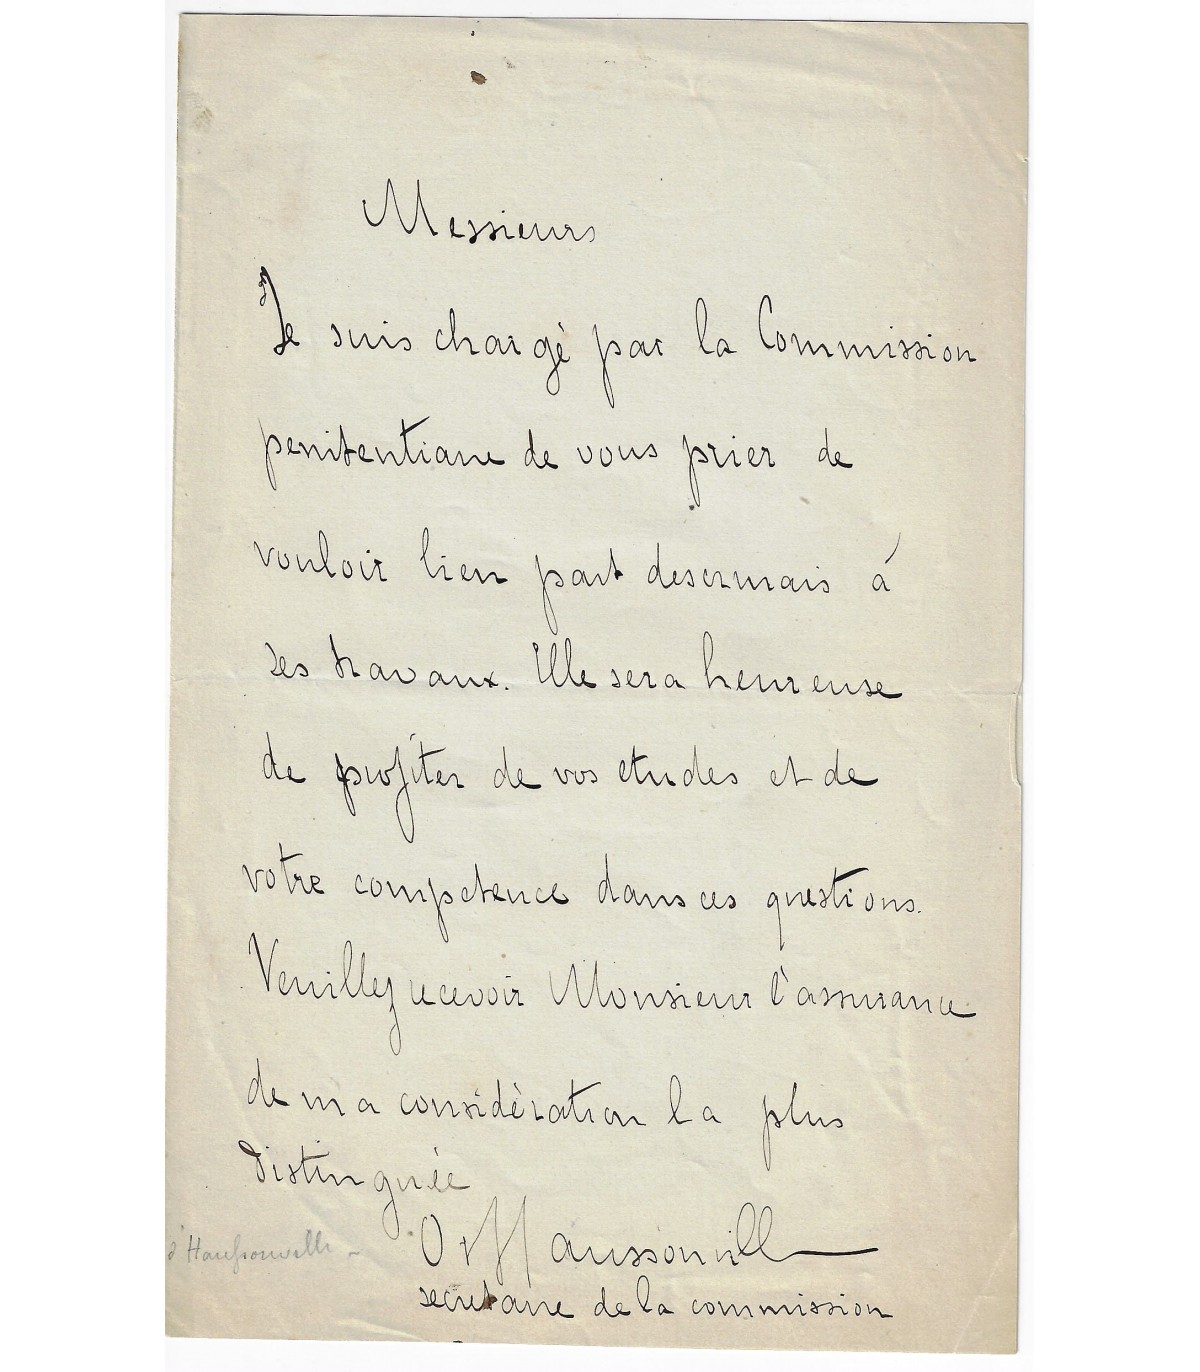 Messieurs
Je suis chargé par la Commission
penitentiaire de vous prier de
vouloir bien part desormais à
ses travaux. Elle sera heureuse
de profiter de vos etudes et de
votre competence dans ces questions.
Veuillez recevoir Monsieur l'assurance
de ma considèration la plus
distinguée
d'Haussonville
O d'Haussonville
secretaire de la commission